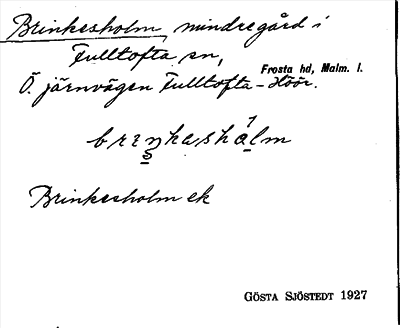 Brinkesholm, mindre gård i
Fulltofta sn,
Frosta hd, Malm. l.
Ö. järnvägen Fulltofta–Höör.
Brinkesholm ek
GÖSTA SJÖSTEDT 1927